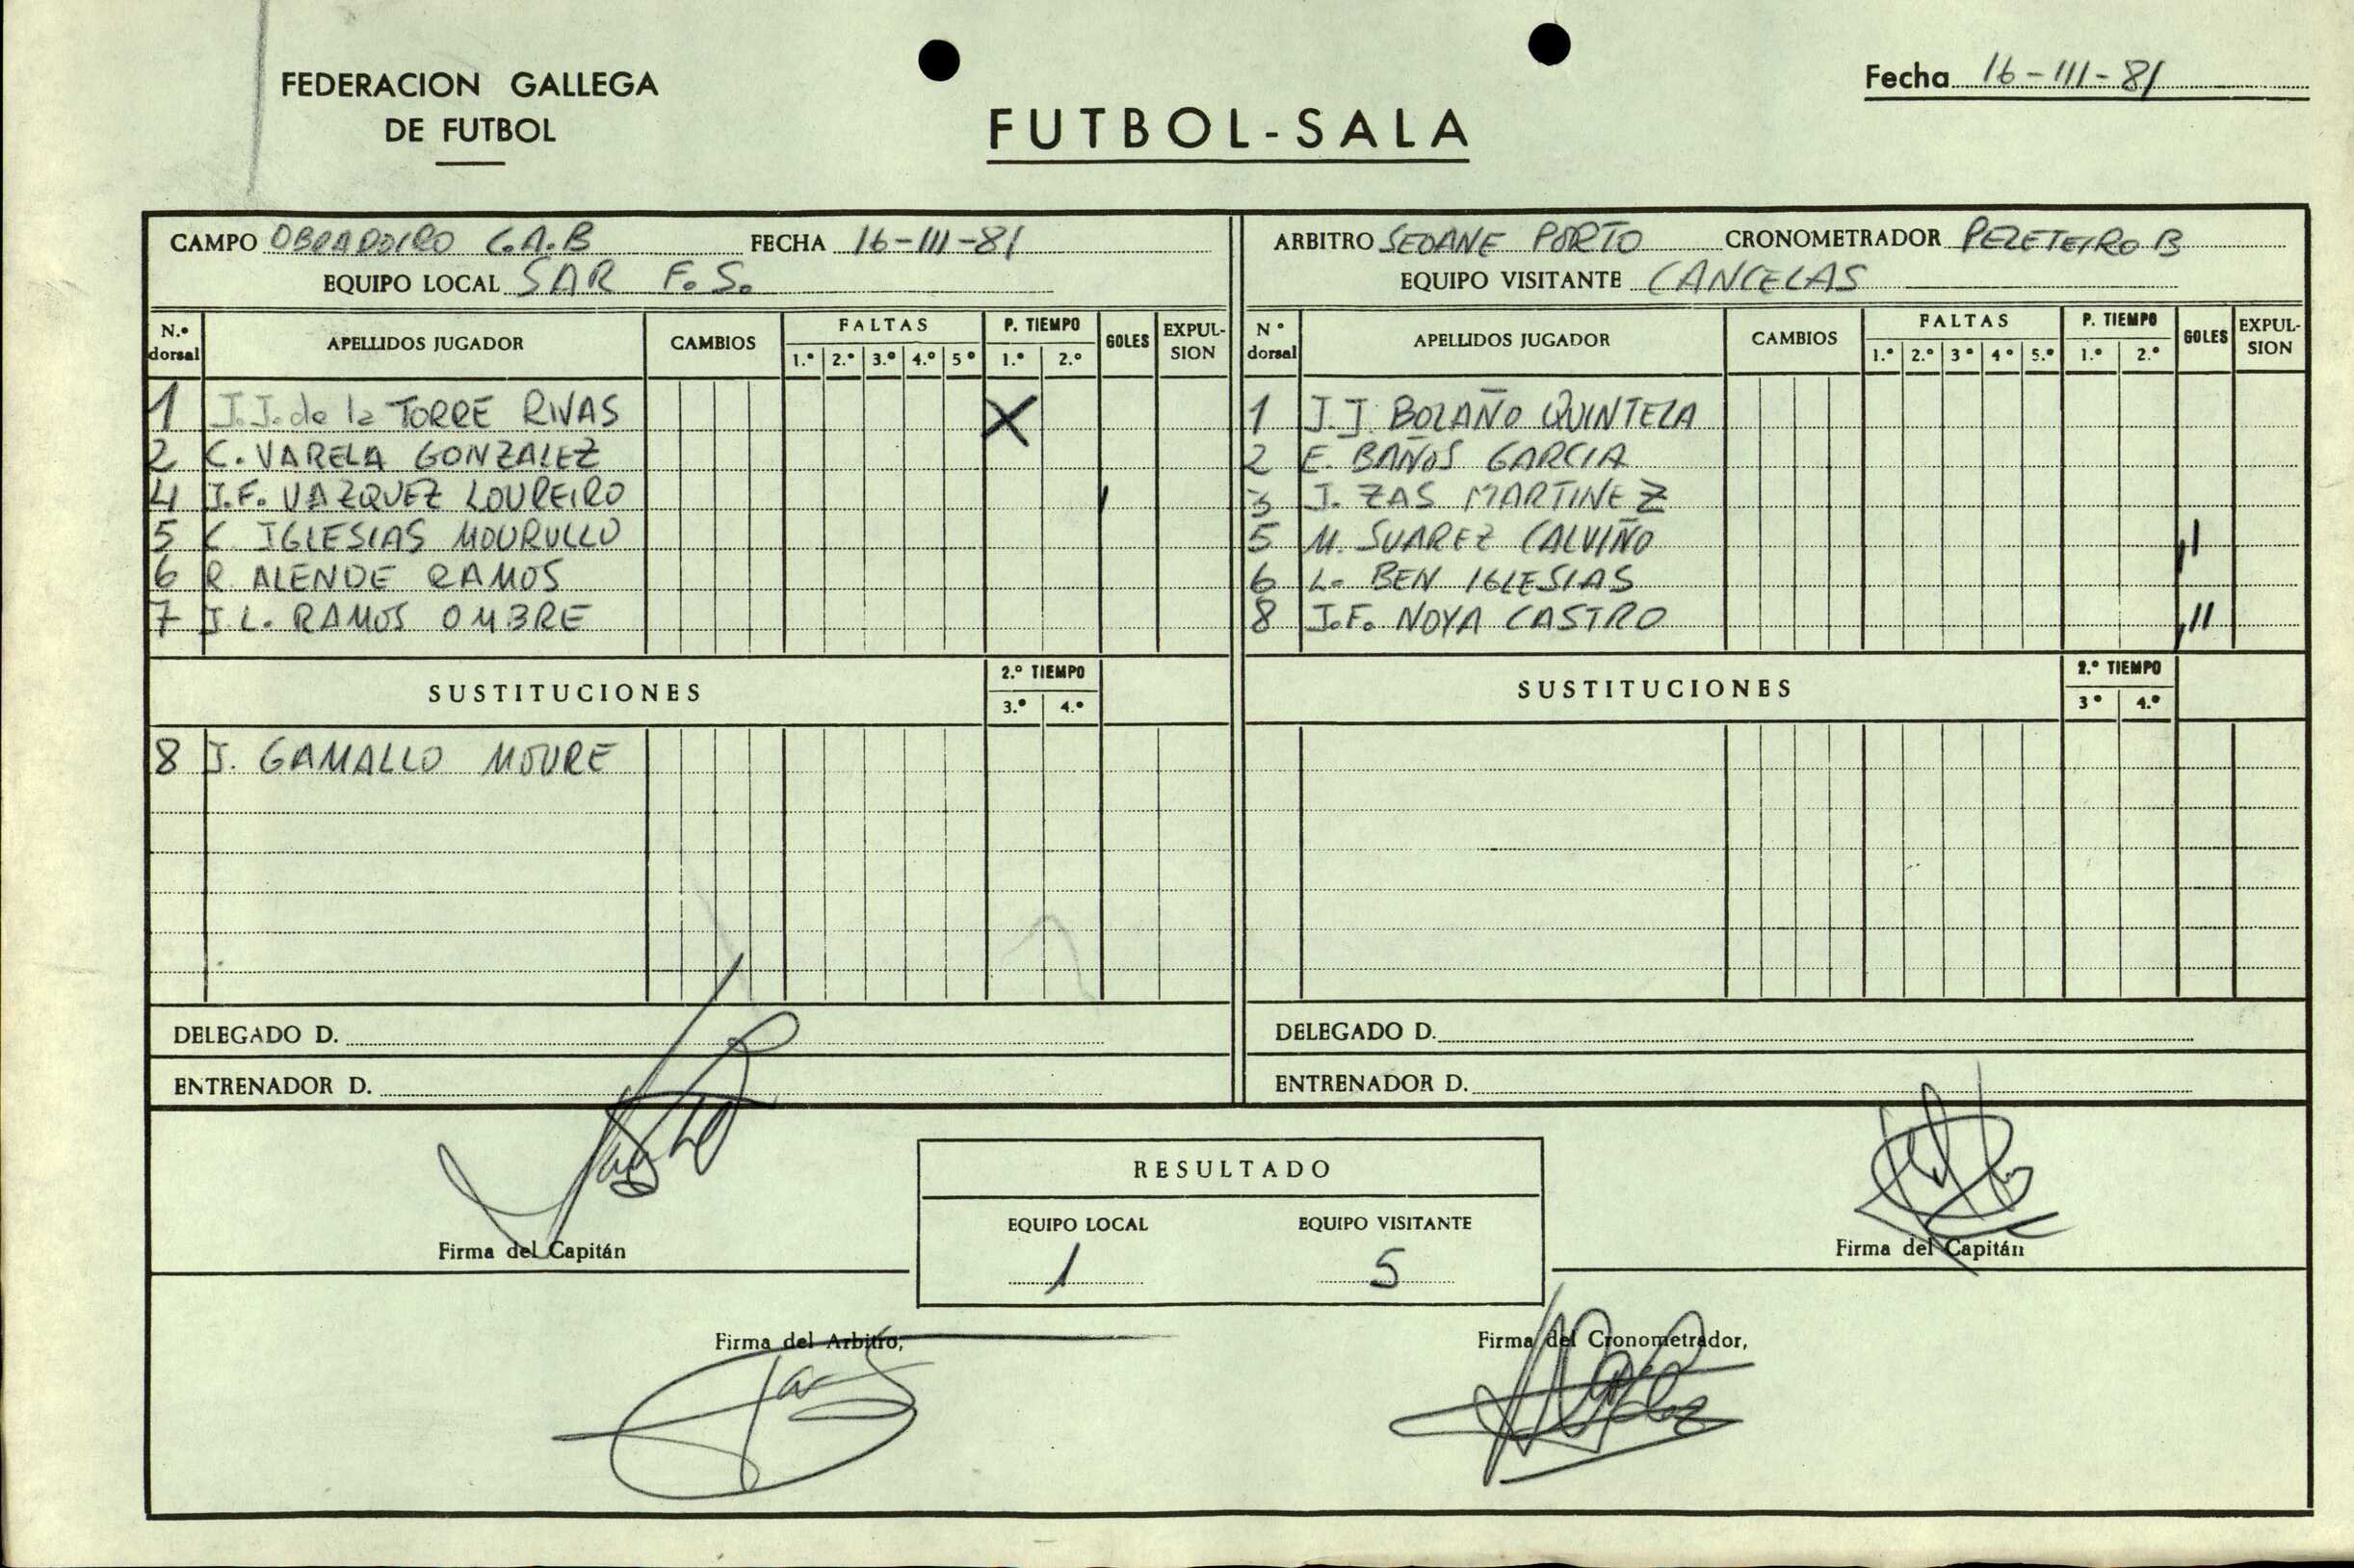 FEDERACION GALLEGA
DE FUTBOL
FUTBOL-SALA
Fecha 16-III-81
CAMPO OBRADOIRO C.A.B FECHA 16-III-81
EQUIPO LOCAL SAR F.S.
ARBITRO SEOANE PORTO CRONOMETRADOR PEZETEIRO B
EQUIPO VISITANTE CANCELAS
N.º dorsal APELLIDOS JUGADOR CAMBIOS FALTAS 1.º 2.º 3.º 4.º 5º P. TIEMPO 1.º 2.º GOLES EXPULSION
1 J.J. de la TORRE RIVAS X
2 C. VARELA GONZALEZ
4 J.F. VAZQUEZ LOUREIRO I
5 C. IGLESIAS MOURULLO
6 R. ALENDE RAMOS
7 J.L. RAMOS OMBRE
SUSTITUCIONES 2.º TIEMPO 3.º 4.º
8 J. GAMALLO MOURE
DELEGADO D.
ENTRENADOR D.
N º dorsal APELLIDOS JUGADOR CAMBIOS FALTAS 1.º 2.º 3º 4º 5.º P. TIEMPO 1.º 2.º GOLES EXPULSION
1 J.J. BOLAÑO QUINTELA
2 E. BAÑOS GARCIA
3 J. ZAS MARTINEZ
5 M. SUAREZ CALVIÑO II
6 L. BEN IGLESIAS
8 J.F. NOYA CASTRO III
SUSTITUCIONES 2.º TIEMPO 3º 4.º
DELEGADO D.
ENTRENADOR D.
RESULTADO
EQUIPO LOCAL EQUIPO VISITANTE
1 5
Firma del Capitán
Firma del Capitán
Firma del Arbitro,
Firma del Cronometrador,